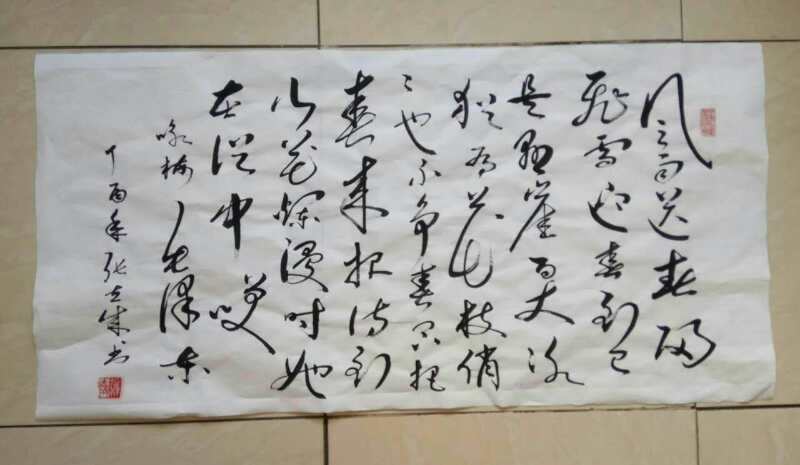 风雨送春归
飞雪迎春到已
是悬崖百丈冰
犹有花枝俏
〻也不争春只把
春来报待到
山花烂漫时她
在丛中笑
咏梅 毛泽东
丁酉年 张 书